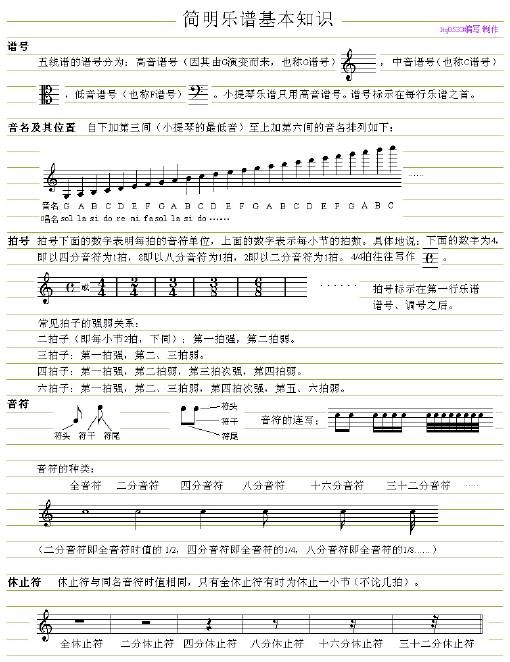 简明乐谱基本知识
编写 制作
谱号
五线谱的谱号分为：高音谱号（因其由G演变而来，也称G谱号） ，中音谱号（也称C谱号）
，低音谱号（也称F谱号） 。小提琴乐谱只用高音谱号。谱号标示在每行乐谱之首。
音名及其位置 自下加第三间（小提琴的最低音）至上加第六间的音名排列如下：
......
音名 G A B C D E F G A B C D E F G A B C D E F G A B C
唱名 sol la si do re mi fa sol la si do ······
拍号 拍号下面的数字表明每拍的音符单位，上面的数字表示每小节的拍数。具体地说：下面的数字为4，
即以四分音符为1拍，8即以八分音符为1拍，2即以二分音符为1拍。4/4拍往往写作 。
C 或 4/4 2/4 3/4 3/8 6/8 ······ 拍号标示在第一行乐谱
谱号、调号之后。
常见拍子的强弱关系：
二拍子（即每小节2拍，下同）：第一拍强，第二拍弱。
三拍子：第一拍强，第二、三拍弱。
四拍子：第一拍强，第二拍弱，第三拍次强，第四拍弱。
六拍子：第一拍强，第二、三拍弱，第四拍次强，第五、六拍弱。
音符
符头 符干 符尾
符头
符干
符尾
音符的连写：
音符的种类：
全音符 二分音符 四分音符 八分音符 十六分音符 三十二分音符 ·····
（二分音符即全音符时值的 1/2，四分音符即全音符的1/4，八分音符即全音符的1/8......）
休止符 休止符与同名音符时值相同，只有全休止符有时为休止一小节（不论几拍）。
全休止符 二分休止符 四分休止符 八分休止符 十六分休止符 三十二分休止符